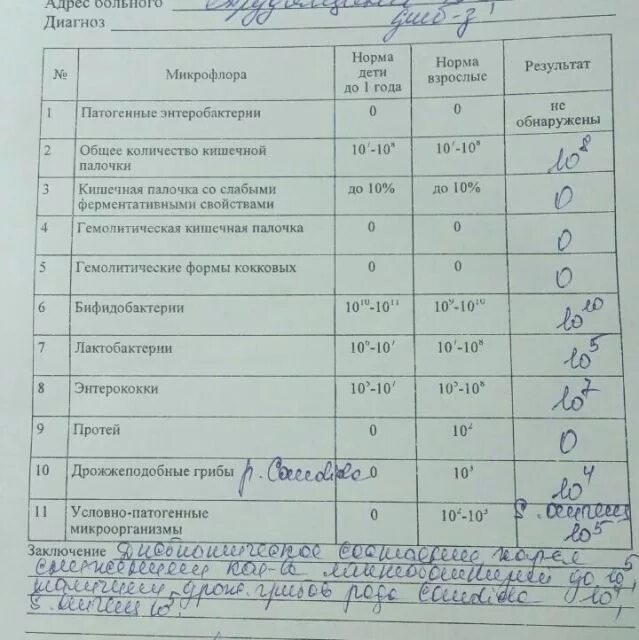 Адрес больного
Диагноз
№ Микрофлора Норма дети до 1 года Норма взрослые Результат
1 Патогенные энтеробактерии 0 0 не обнаружены
2 Общее количество кишечной палочки 10⁷-10⁸ 10⁷-10⁸ 10⁸
3 Кишечная палочка со слабыми ферментативными свойствами до 10% до 10% 0
4 Гемолитическая кишечная палочка 0 0 0
5 Гемолитические формы кокковых 0 0 0
6 Бифидобактерии 10¹⁰-10¹¹ 10⁹-10¹⁰ 10¹⁰
7 Лактобактерии 10⁶-10⁷ 10⁷-10⁸ 10⁵
8 Энтерококки 10⁵-10⁷ 10⁵-10⁸ 10⁷
9 Протей 0 10² 0
10 Дрожжеподобные грибы р. Candida 0 10³ 10⁴
11 Условно-патогенные микроорганизмы 0 10²-10³ S. 10⁵
Заключение Дисбиотическое состояние
кол-ва лактобактерий до 10⁵
наличием дрож. грибов рода Candida 10⁴,
S. 10⁵